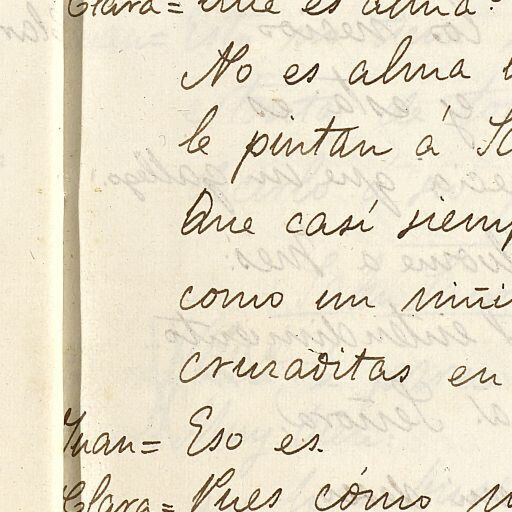 Clara = que es alma?
No es alma
le pintan á
Que casí siemp
como un niñi
cruzaditas en
Juan = Eso es.
Clara = Pues cómo